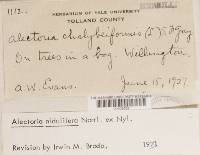 1112.
HERBARIUM OF YALE UNIVERSITY
TOLLAND COUNTY
Alectoria chalybeiformis (L)
On trees in a bog. Willington
A.W. Evans. June 15, 1927
Alectoria nidulifera Norrl. ex Nyl.
Revision by Irwin M. Brodo,